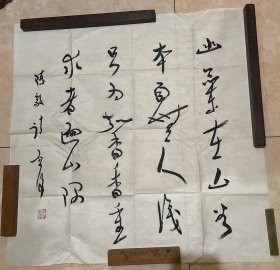 幽兰在山谷
本自无人识
只为馨香重
求者遍山隅
陈毅诗